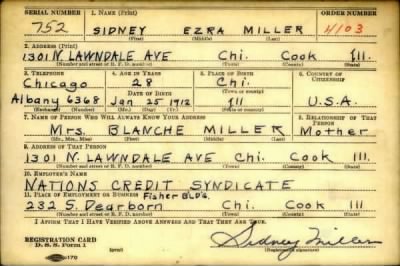 SERIAL NUMBER 1. NAME (Print) ORDER NUMBER
752 SIDNEY EZRA MILLER 4103
(First) (Middle) (Last)
2. ADDRESS (Print)
1301 N LAWNDALE AVE Chi. Cook Ill.
(Number and street or R. F. D. number) (Town) (County) (State)
3. TELEPHONE 4. AGE IN YEARS 5. PLACE OF BIRTH 6. COUNTRY OF CITIZENSHIP
Chicago 28 Chi.
DATE OF BIRTH (Town or county)
Albany 6368 Jan 25 1912 Ill U.S.A.
(Exchange) (Number) (Mo.) (Day) (Yr.) (State or country)
7. NAME OF PERSON WHO WILL ALWAYS KNOW YOUR ADDRESS 8. RELATIONSHIP OF THAT PERSON
Mrs. BLANCHE MILLER Mother
(Mr., Mrs., Miss) (First) (Middle) (Last)
9. ADDRESS OF THAT PERSON
1301 N. LAWNDALE AVE Chi. Cook Ill.
(Number and street or R. F. D. number) (Town) (County) (State)
10. EMPLOYER'S NAME
NATIONS CREDIT SYNDICATE
11. PLACE OF EMPLOYMENT OR BUSINESS Fisher BLD'G.
232 S. Dearborn Chi. Cook Ill.
(Number and street or R. F. D. number) (Town) (County) (State)
I AFFIRM THAT I HAVE VERIFIED ABOVE ANSWERS AND THAT THEY ARE TRUE.
REGISTRATION CARD
D. S. S. Form 1 Sidney Miller
(Registrant's signature)